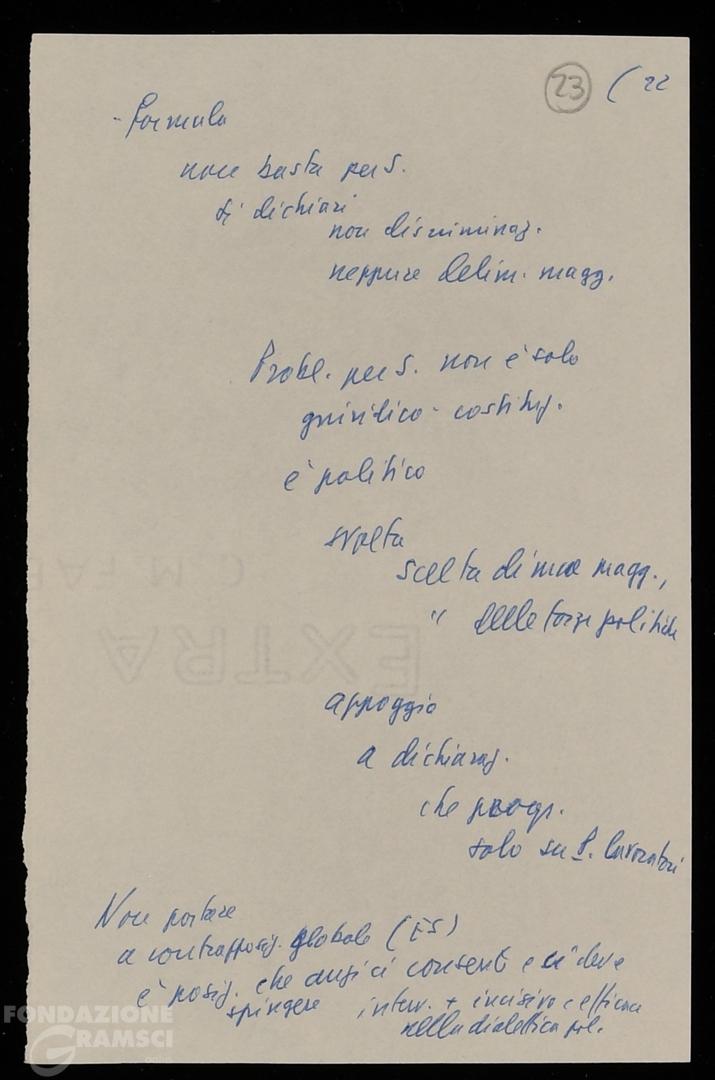 23 ( 22
- Formula
non basta per S.
si dichiari
non discriminaz.
neppure delim. magg.
Probl. per S. non è solo
giuridico - costituz.
è politico
svolta
scelta di nuova magg.,
" delle forze politiche
appoggio
a dichiaraz.
che progr.
solo su S. lavoratori
Non portare
a contrapposiz. globale (ES)
è posiz. che anzi ci consente e ci deve
spingere interv. + incisivo e efficace
nella dialettica pol.
EXTRA
FONDAZIONE
GRAMSCI